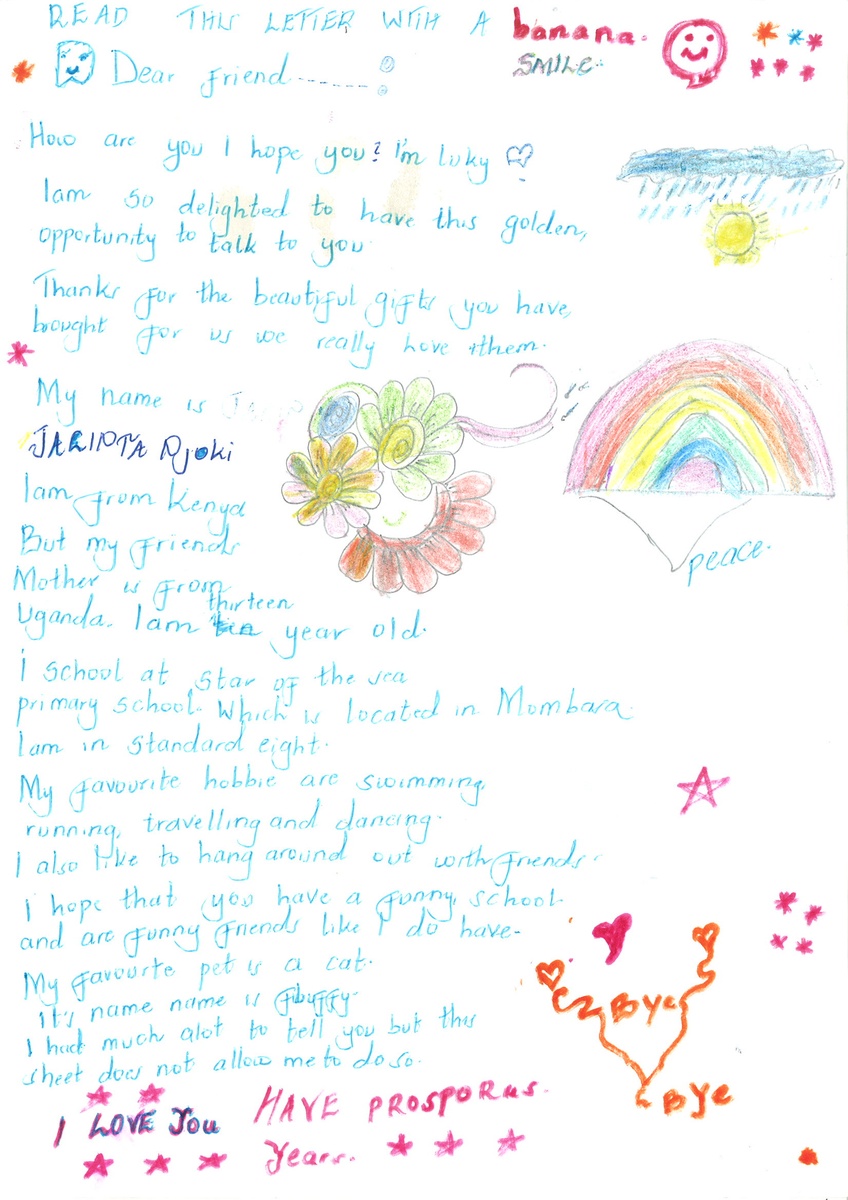 READ THIS LETTER WITH A banana.
SMILE.
Dear friend
How are you I hope you? I'm luky
Iam so delighted to have this golden,
opportunity to talk to you.
Thanks for the beautiful gifts you have,
bought for us we really love them.
My name is
JACINTA Njoki
Iam from Kenya
But my friends
Mother is from
thirteen
Uganda. Iam year old.
I school at star of the sea
primary school. Which is located in Mombasa.
Iam in standard eight.
My favourite hobbie are swimming,
running, travelling and dancing.
I also like to hang around out with friends.
I hope that you have a funny, school
and are funny friends like I do have.
My favourte pet is a cat.
it's name name is
I had much alot to tell you but this
sheet does not allow me to do so.
I LOVE You HAVE PROSPORUS.
Years.
peace.
Bye
Bye